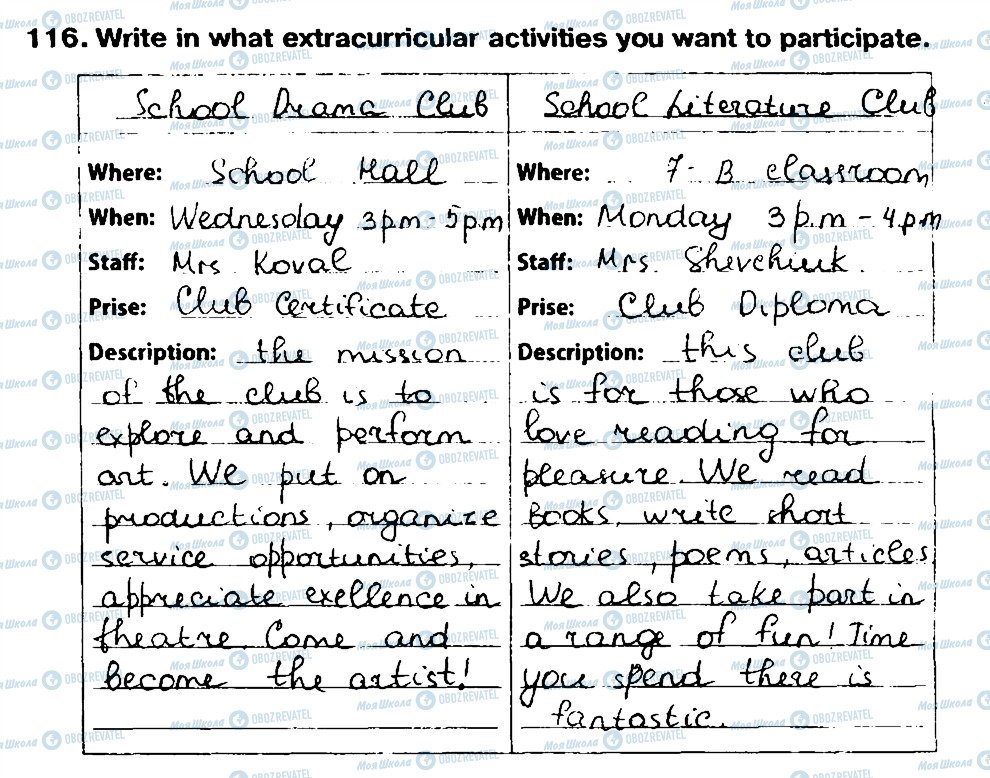 116. Write in what extracurricular activities you want to participate.
School Drama Club
Where: School Hall
When: Wednesday 3pm - 5p.m
Staff: Mrs Koval
Prise: Club Certificate
Description: the mission
of the club is to
explore and perform
art. We put on
productions, organize
service opportunities,
appreciate exellence in
theatre. Come and
become the artist!
School Literature Club
Where: 7-B classroom
When: Monday 3p.m - 4.pm
Staff: Mrs. Shevchuk.
Prise: Club Diploma
Description: this club
is for those who
love reading for
pleasure. We read
Books, write short
stories, poems, articles.
We also take part in
a range of fun! Time
you spend there is
fantastic.